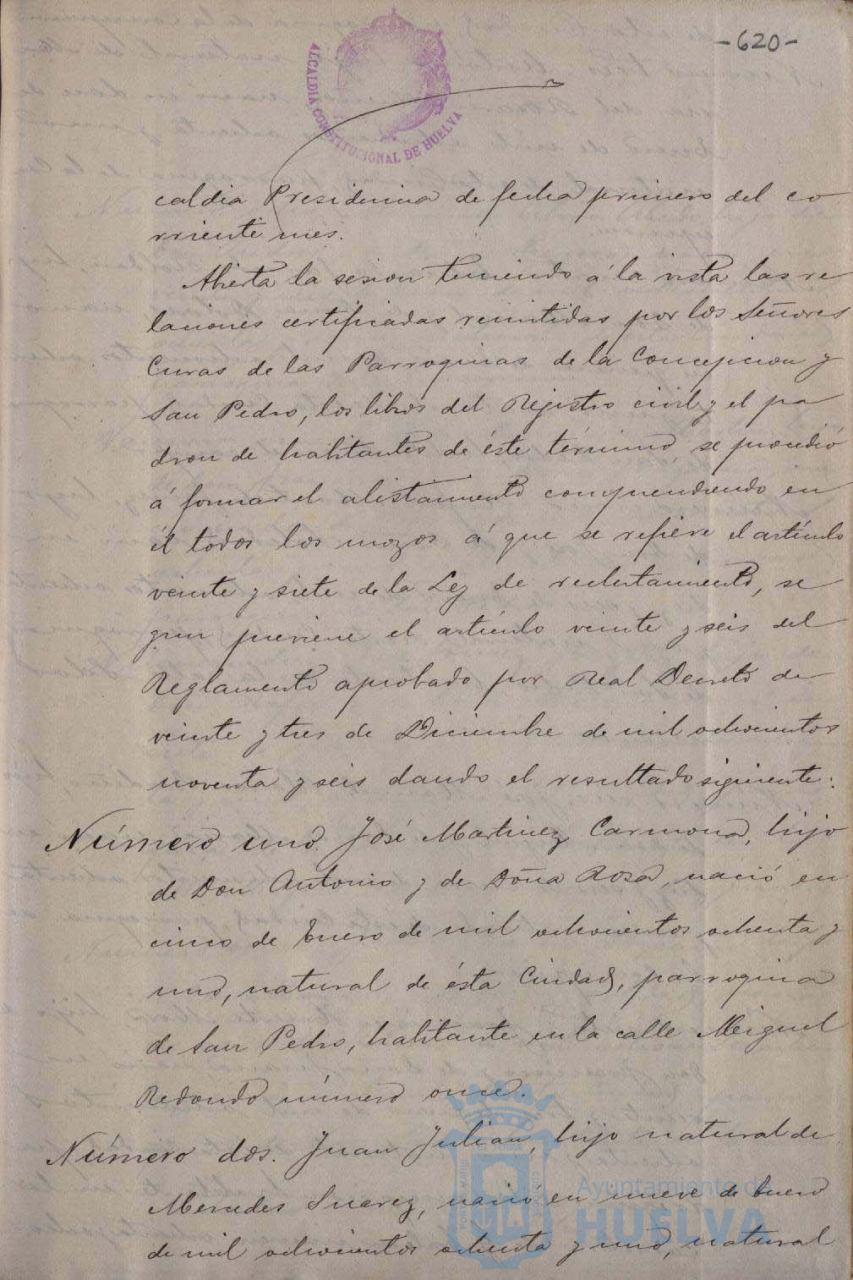 -620-
ALCALDIA CONSTITUCIONAL DE HUELVA
caldia Presidencia de fecha primero del co
rriente mes.
Abierta la sesion teniendo á la vista las re
laciones certificadas remitidas por los Señores
Curas de las Parroquias de la Concepcion y
San Pedro, los libros del Registro civil y el pa
dron de habitantes de éste término, se procedió
á formar el alistamiento comprendiendo en
él todos los mozos á que se refiere el artículo
veinte y siete de la Ley de reclutamiento, se
gun previene el artículo veinte y seis del
Reglamento aprobado por Real Decreto de
veinte y tres de Diciembre de mil ochocientos
noventa y seis dando el resultado siguiente:
Número uno. José Martinez Carmona, hijo
de Don Antonio y de Doña Rosa, nació en
cinco de Enero de mil ochocientos ochenta y
uno, natural de ésta Ciudad, parroquia
de San Pedro, habitante en la calle Miguel
Redondo número once.
Número dos. Juan Julian, hijo natural de
Mercedes Suarez, nació en nueve de Enero
de mil ochocientos ochenta y uno, natural
Ayuntamiento de
HUELVA